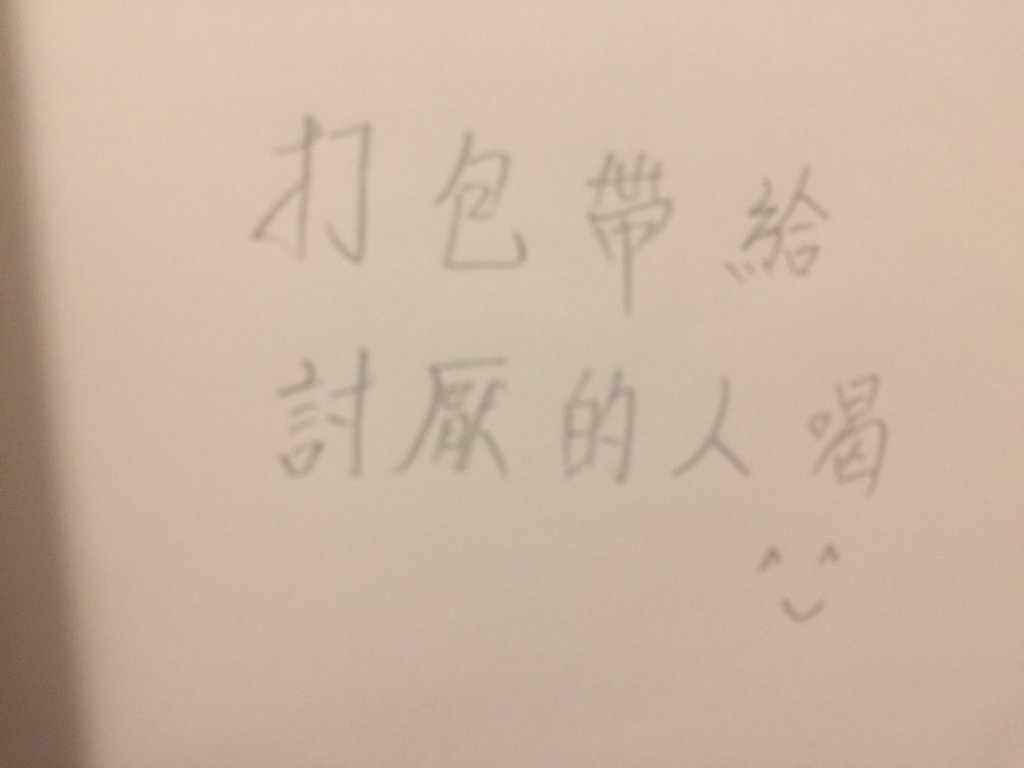 打包帶給
討厭的人喝